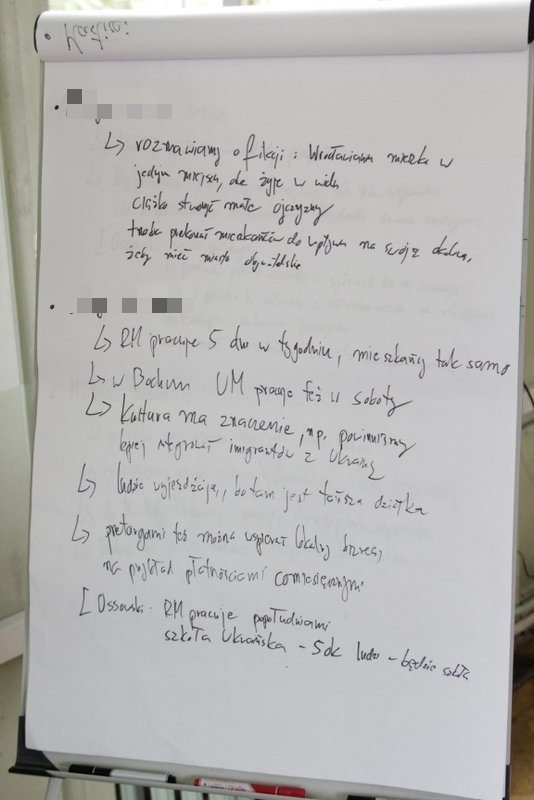 ↳ rozmawiamy o fikcji: Wrocławianin mieszka w
jednym miejscu, ale żyje w wielu
ciężko stworzyć małe ojczyzny
trzeba przekonać mieszkańców do wpływu na swoje
żeby mieć miasto obywatelskie
↳ RM pracuje 5 dni w tygodniu, mieszkańcy tak samo
↳ w Bochum UM pracuje też w soboty
↳ Kultura ma znaczenie, np. powinniśmy
lepiej integrować imigrantów z Ukrainy
↳ ludzie wyjeżdżają, bo tam jest tańsza działka
↳ przetargami też można wspierać lokalny biznes,
na przykład płatnościami comiesięcznymi
[ Ossowski: RM pracuje popołudniami
szkoła Ukraińska - 5 dk ludzi - będzie szkoła